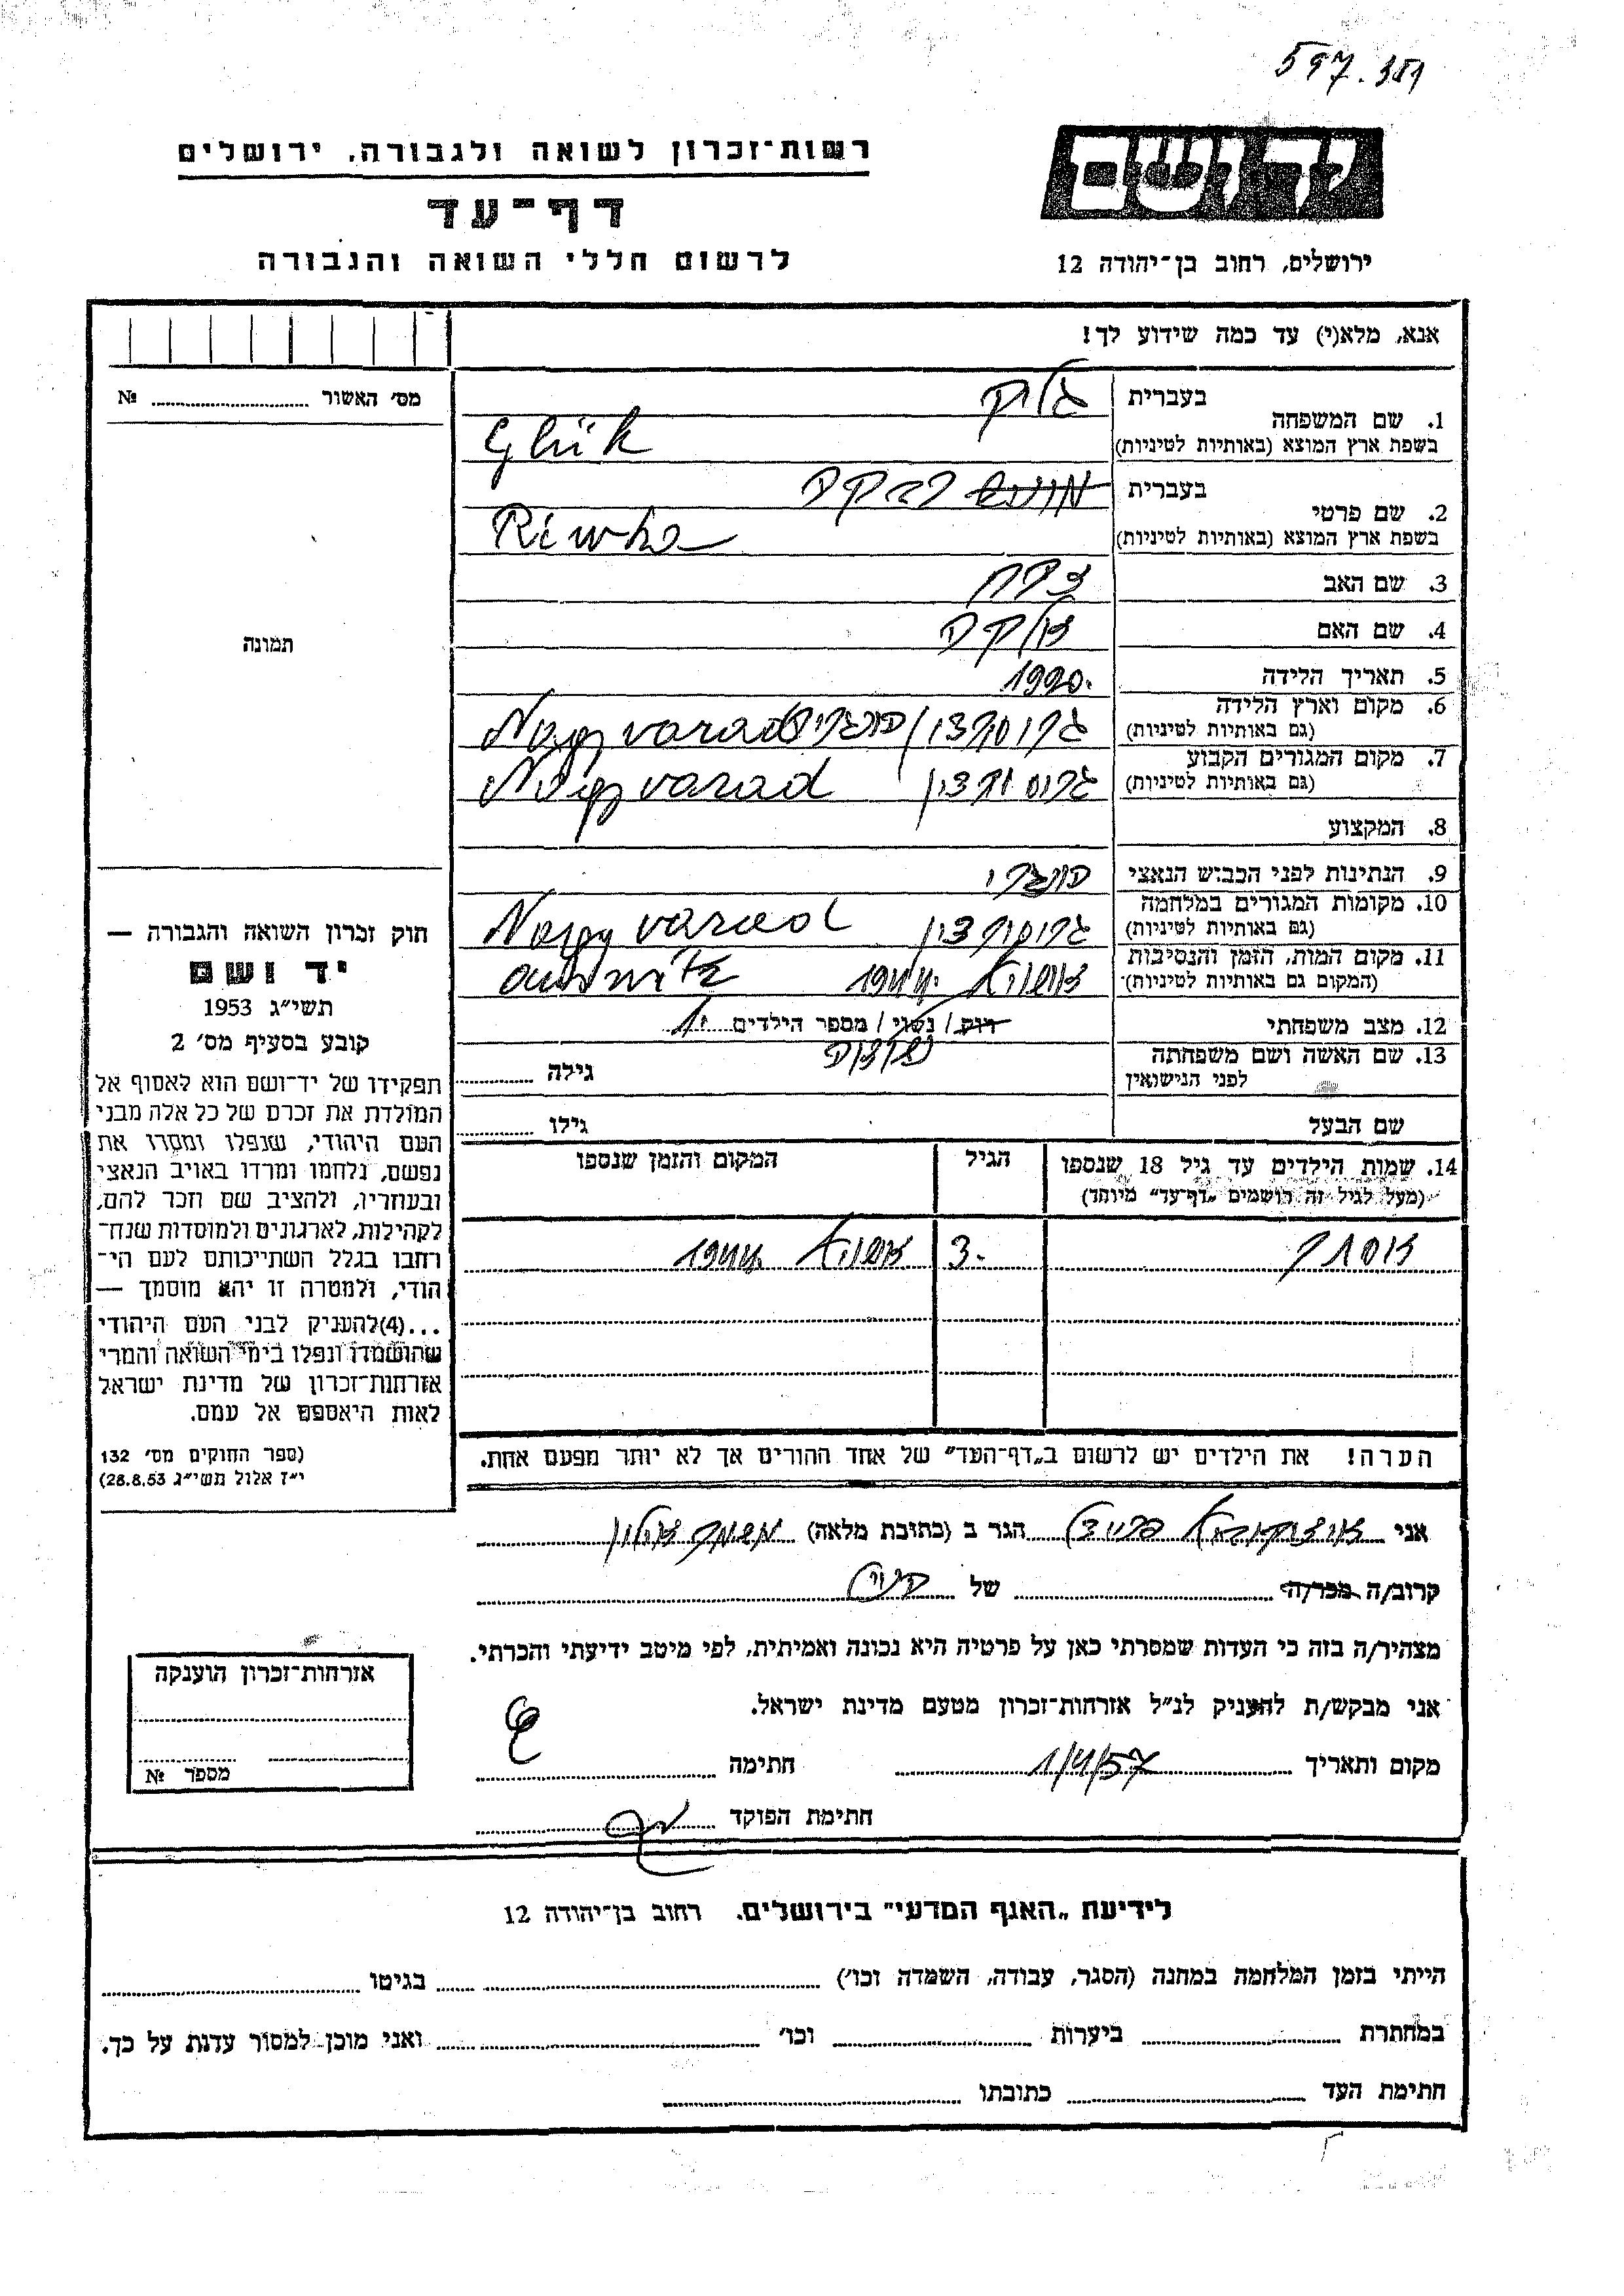 597.359
ידושם
ירושלים, רחוב בן־יהודה 12
רשות־זכרון לשואה ולגבורה, ירושלים
דף־עד
לרשום חללי השואה והגבורה
אנא, מלא(י) עד כמה שידוע לך!
מס׳ האשור № 
1. שם המשפחה בעברית גליק
בשפת ארץ המוצא (באותיות לטיניות) Glük
2. שם פרטי בעברית רבקה
בשפת ארץ המוצא (באותיות לטיניות) Riwka
3. שם האב
4. שם האם
5. תאריך הלידה 1920.
6. מקום וארץ הלידה (גם באותיות לטיניות) גרוסורדין/הונגריה Nagyvarad
7. מקום המגורים הקבוע (גם באותיות לטיניות) גרוסורדין Nagyvarad
8. המקצוע
9. הנתינות לפני הכבוש הנאצי הונגרי
10. מקומות המגורים במלחמה (גם באותיות לטיניות) גרוסורדין Nagyvarad
11. מקום המות, הזמן והנסיבות (המקום גם באותיות לטיניות) אושוויץ 1944. auswitz
12. מצב משפחתי רוק / נשוי / מספר הילדים 1.
13. שם האשה ושם משפחתה לפני הנישואין גילה
שם הבעל גילו
14. שמות הילדים עד גיל 18 שנספו הגיל המקום והזמן שנספו
(מעל לגיל זה רושמים „דף־עד״ מיוחד)
אסתר 3. אושוויץ 1944
הערה! את הילדים יש לרשום ב„דף־העד״ של אחד ההורים אך לא יותר מפעם אחת.
תמונה
חוק זכרון השואה והגבורה —
יד ושם
תשי״ג 1953
קובע בסעיף מס׳ 2
תפקידו של יד־ושם הוא לאסוף אל
המולדת את זכרם של כל אלה מבני
העם היהודי, שנפלו ומסרו את
נפשם, נלחמו ומרדו באויב הנאצי
ובעוזריו, ולהציב שם וזכר להם,
לקהילות, לארגונים ולמוסדות שנח־
רחבו בגלל השתייכותם לעם הי־
הודי, ולמטרה זו יהא מוסמך —
...(4)להעניק לבני העם היהודי
שהושמדו ונפלו בימי השואה והמרי
אזרחות־זכרון של מדינת ישראל
לאות היאספם אל עמם.
(ספר החוקים מס׳ 132
י״ז אלול תשי״ג 28.8.53)
אני הגר ב (כתובת מלאה) משמר אילון
קרוב/ה מכר/ה של
מצהיר/ה בזה כי העדות שמסרתי כאן על פרטיה היא נכונה ואמיתית, לפי מיטב ידיעתי והכרתי.
אני מבקש/ת להעניק לנ״ל אזרחות־זכרון מטעם מדינת ישראל.
מקום ותאריך 1/4/57 חתימה
חתימת הפוקד
אזרחות־זכרון הוענקה
מספר №
לידיעת „האגף המדעי״ בירושלים, רחוב בן־יהודה 12
הייתי בזמן המלחמה במחנה (הסגר, עבודה, השמדה וכו׳) בגיטו
במחתרת ביערות וכו׳ ואני מוכן למסור עדות על כך.
חתימת העד כתובתו